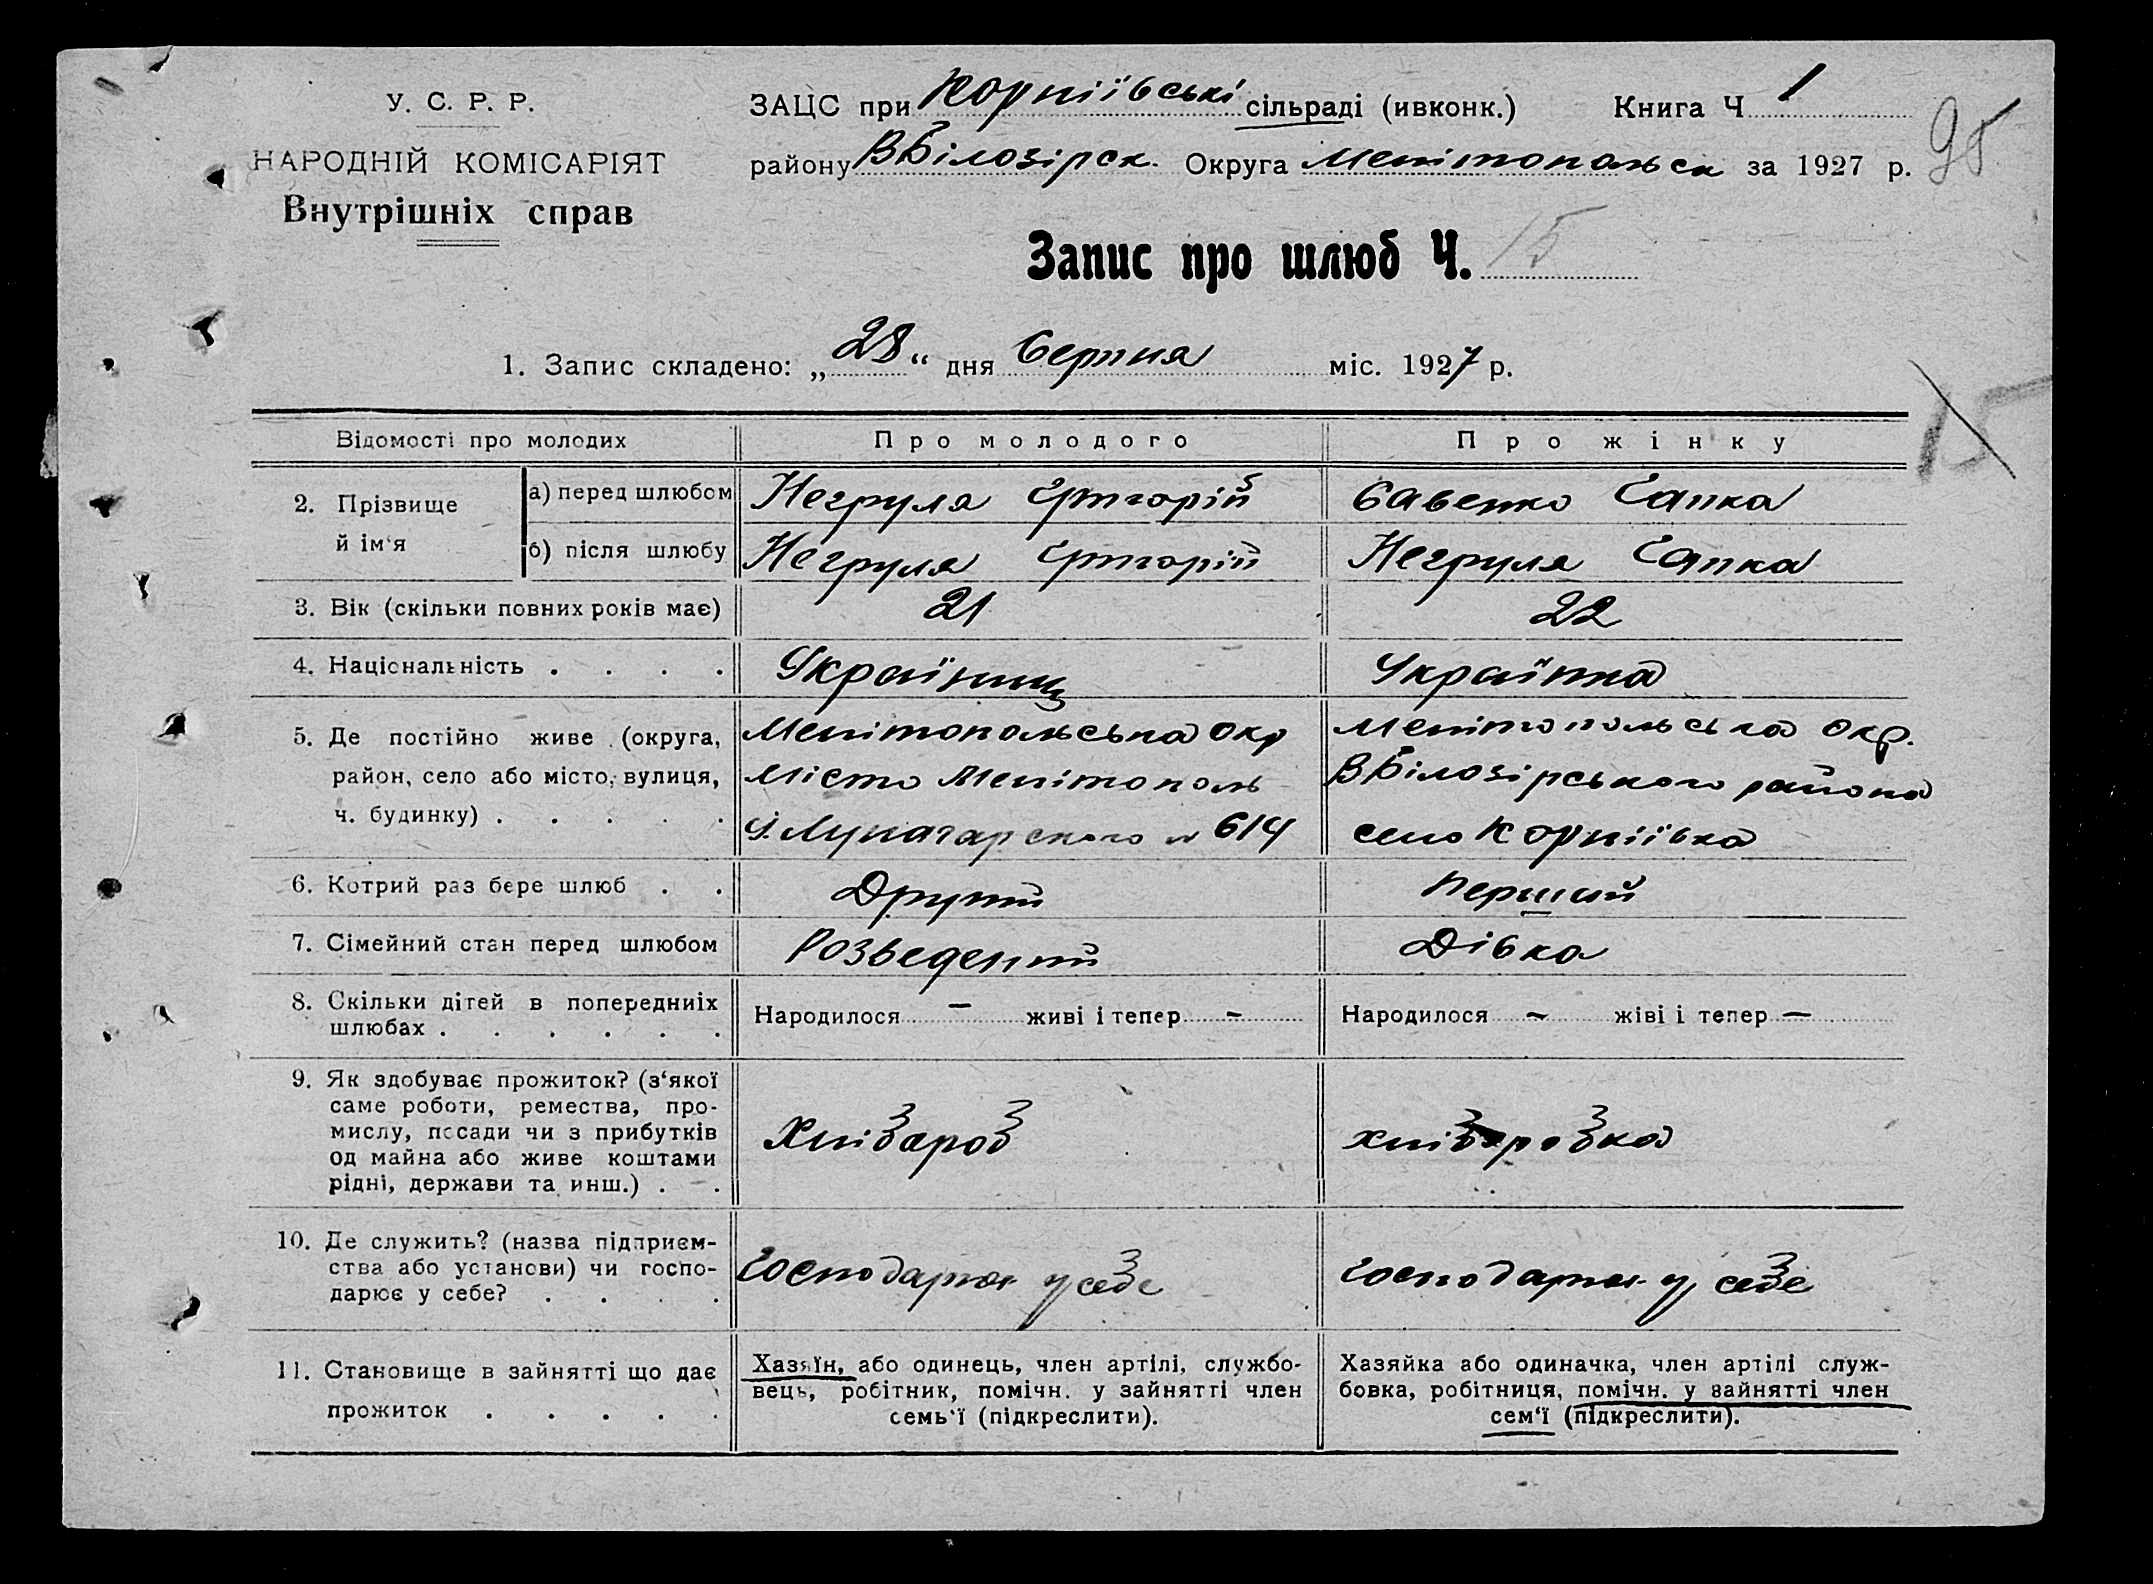 У. С. Р. Р.
НАРОДНІЙ КОМІСАРІЯТ
Внутрішніх справ
ЗАЦС при Корніївські сільраді (ивконк.) Книга Ч 1
району ВБілозірск. Округа Мелітопольск за 1927 р.
95
Запис про шлюб Ч. 15
1. Запис складено: „28“ дня Серпня міс. 1927 р.
15
Відомості про молодих Про молодого Про жінку
2. Прізвище й ім‘я
а) перед шлюбом Негруля Григорій Савенко Ганка
б) після шлюбу Негруля Григорій Негруля Ганка
3. Вік (скільки повних років має) 21 22
4. Національність . . . . Україниц Українка
5. Де постійно живе (округа,
район, село або місто, вулиця,
ч. будинку) . . . . .
Мелітопольська Окр
Місто Мелітополь
Луначарского № 614
Мелітопольська Окр.
ВБілозірського района
село Корніївка
6. Котрий раз бере шлюб . . Другий Перший
7. Сімейний стан перед шлюбом Розведений Дівка
8. Скільки дітей в попередниіх
шлюбах . . . . . .
Народилося — живі і тепер — Народилося — жіві і тепер —
9. Як здобуває прожиток? (з‘якої
саме роботи, ремества, про-
мислу, посади чи з прибутків
од майна або живе коштами
рідні, держави та инш.) . .
Хлібароб хлібаробка
10. Де служить? (назва підприєм-
ства або установи) чи госпо-
дарює у себе? . . . .
Господарює у себе Господарює у себе
11. Становище в зайнятті що дає
прожиток . . . . .
Хазяїн, або одинець, член артілі, службо-
вець, робітник, помічн. у зайнятті член
семь‘ї (підкреслити).
Хазяйка або одиначка, член артілі служ-
бовка, робітниця, помічн. у зайнятті член
сем‘ї (підкреслити).